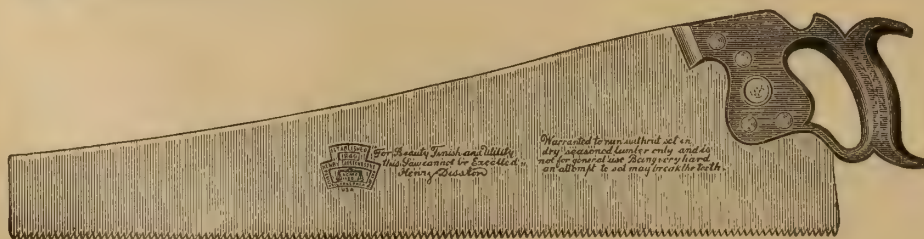 ESTABLISHED
1840
HENRY DISSTON & SONS
U.S.A.
For Beauty, Finish and Utility
this Saw cannot be Excelled,,
Henry Disston
Warranted to run without set in
dry seasoned lumber only and is
not for general use Being very hard
an attempt to set may break the teeth.